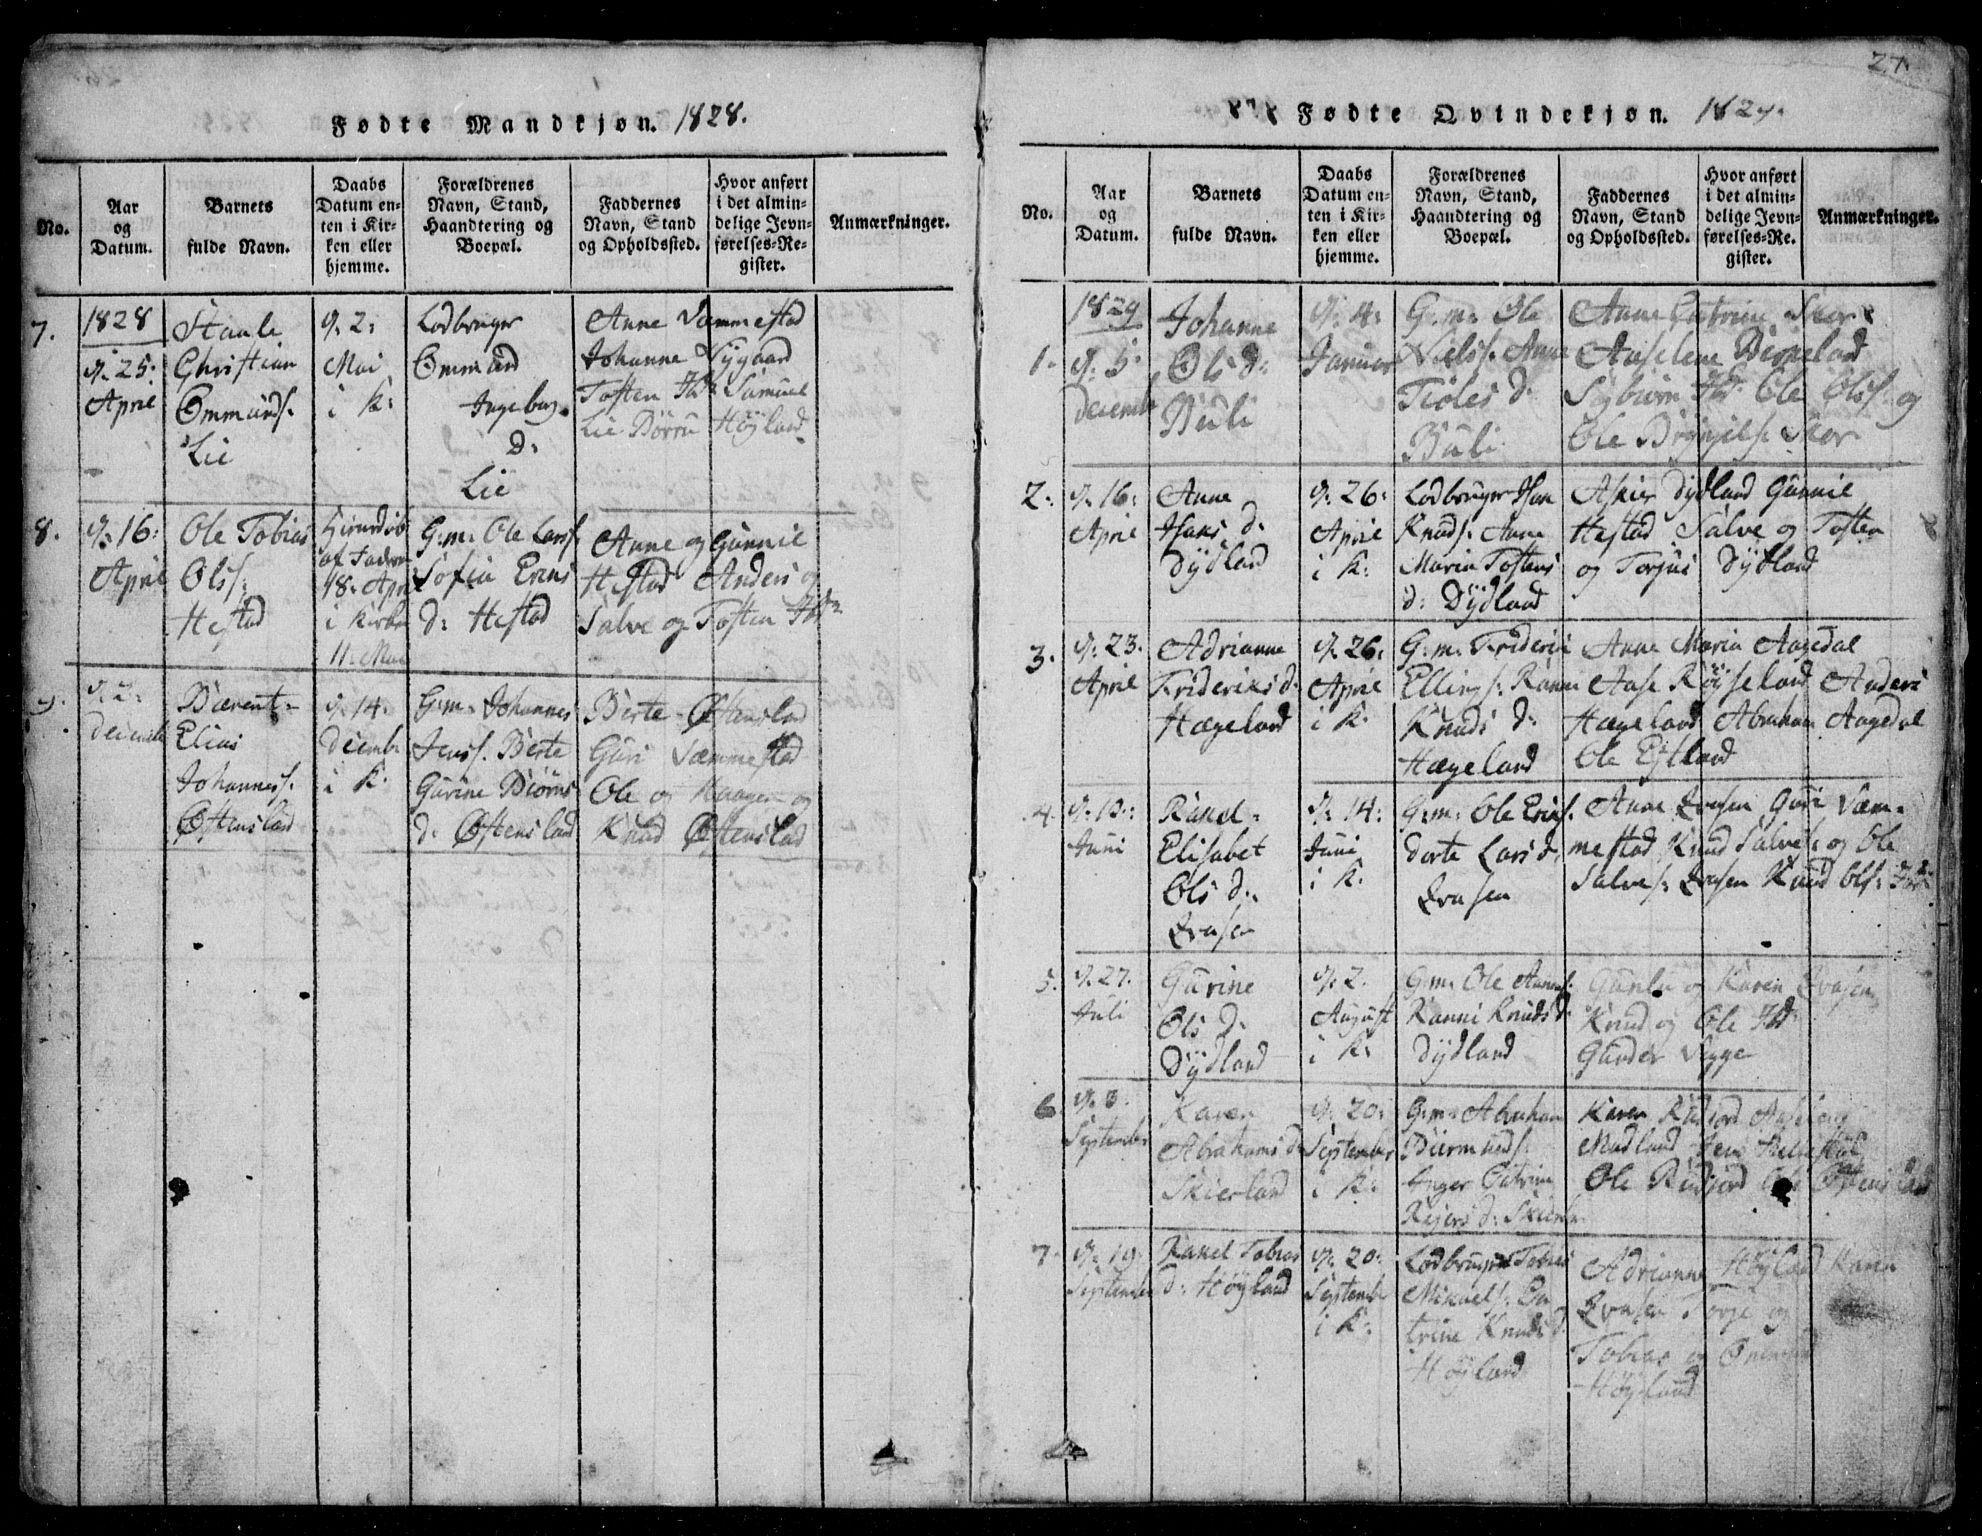 27.
Fødte Mandkjøn. 1828.
No.
Aar
og
Datum.
Barnets
fulde Navn.
Daabs
Datum en-
ten i Kir-
ken eller
hjemme.
Forældrenes
Navn, Stand,
Haandtering og
Boepæl.
Faddernes
Navn, Stand
og Opholdssted.
Hvor anført
i det almin-
delige Jevn-
førelses-Re-
gister.
Anmærkninger.
7.
1828
d. 25:
April
Staale
Christian
Ommunds.
Lie
d. 2:
Mai
i K:
Lodbruger
Ommund
Ingeborg
D:
Lie
Anne Væmmestad
Johanne Nygaard
Tosten Ibd. Samuel
Lie Børru Høyland
8.
d. 16:
April
Ole Tobias
Ols:
Hestad
af Fadern
18. Apr
i Kirken
11. Mai
G:m: Ole Lars.
Sofia Erens
D: Hestad
Anne og Gunnil
Hestad Anders og
Salve og Tosten Ibd.
9.
d. 2:
Decemb
Bærent-
Elias
Johannes.
Øftensland
d. 14.
Decembr
i K.
G:m. Johannes
Jens. Berte
Gurine Biørns
d: Øftensland
Berte Øftensland
Guri Væmmestad
Ole og Haagen og
Knud Øftenslad
Fødte Qvindekjøn. 1829.
No.
Aar
og
Datum.
Barnets
fulde Navn.
Daabs
Datum en-
ten i Kir-
ken eller
hjemme.
Forældrenes
Navn, Stand,
Haandtering og
Boepæl.
Faddernes
Navn, Stand
og Opholdssted.
Hvor anført
i det almin-
delige Jevn-
førelses-Re-
gister.
Anmærkninger.
1.
1829
d. 5.
Decemb
Johanne
Ols d:
Buli
d. 4:
Januar
G:m: Ole
Niels. Anne
Tioles d:
Buli
Anne Catrine Skor
Aaselene Birkeland
Ibd. Ole Ols. og
Ole Skor
2.
d. 16:
April
Anne
Hans d:
Dydland
d. 26:
April
i K:
Lodbruger Han
Knuds. Anne
Maria Tostens
d: Dydland
Askier Dydland Gunnil
Hestad Salve og Tosten
og Torjus Dydland
3.
d. 23.
April
Adrianne
Frideriks d.
Hægeland
d. 26:
April
i K.
G:m: Frideric
Ellings. Ranne
Knuds d:
Hægeland
Anne Maria Aagedal
Aase Røyseland Anders
Hægeland Abraham Aagedal
Ole Estland
4.
d. 13:
Juni
Rakel
Elisabet
Ols d:
Evasen
d. 14:
Juni
i K.
G:m: Ole Erics.
Dorte Lars d.
Evasen
Anne Evasen Guri Væm-
mestad Knud Salves. og Ole
Salves: Evasen Knud Ols: Ibd.
5.
d. 27.
Juli
Gurine
Ols d:
Dydland
d. 2.
August
i K:
G:m: Ole Aanens.
Ranni Knuds d.
Dydland
Gunle og Karen Evasen
Knud og Ole Ibd.
Gunder Vegge
6.
d. 3.
September
Karen
Abrahams d
Skierland
d. 20:
September
i K:
G:m: Abraham
Biermunds.
Inger Catrine
Rejers d: Skierla
Karen
Mudland Jens
Ole
7.
d. 19.
September
Rakel Tobias
d: Høyland
d. 20:
Septembr
i K:
Lodbruger Tobias
Mikaels. Ca
trine Knuds d.
Høyland
Adrianne Høyland Karen
Evasen Torje og
Tobias og Ommund
Høyland